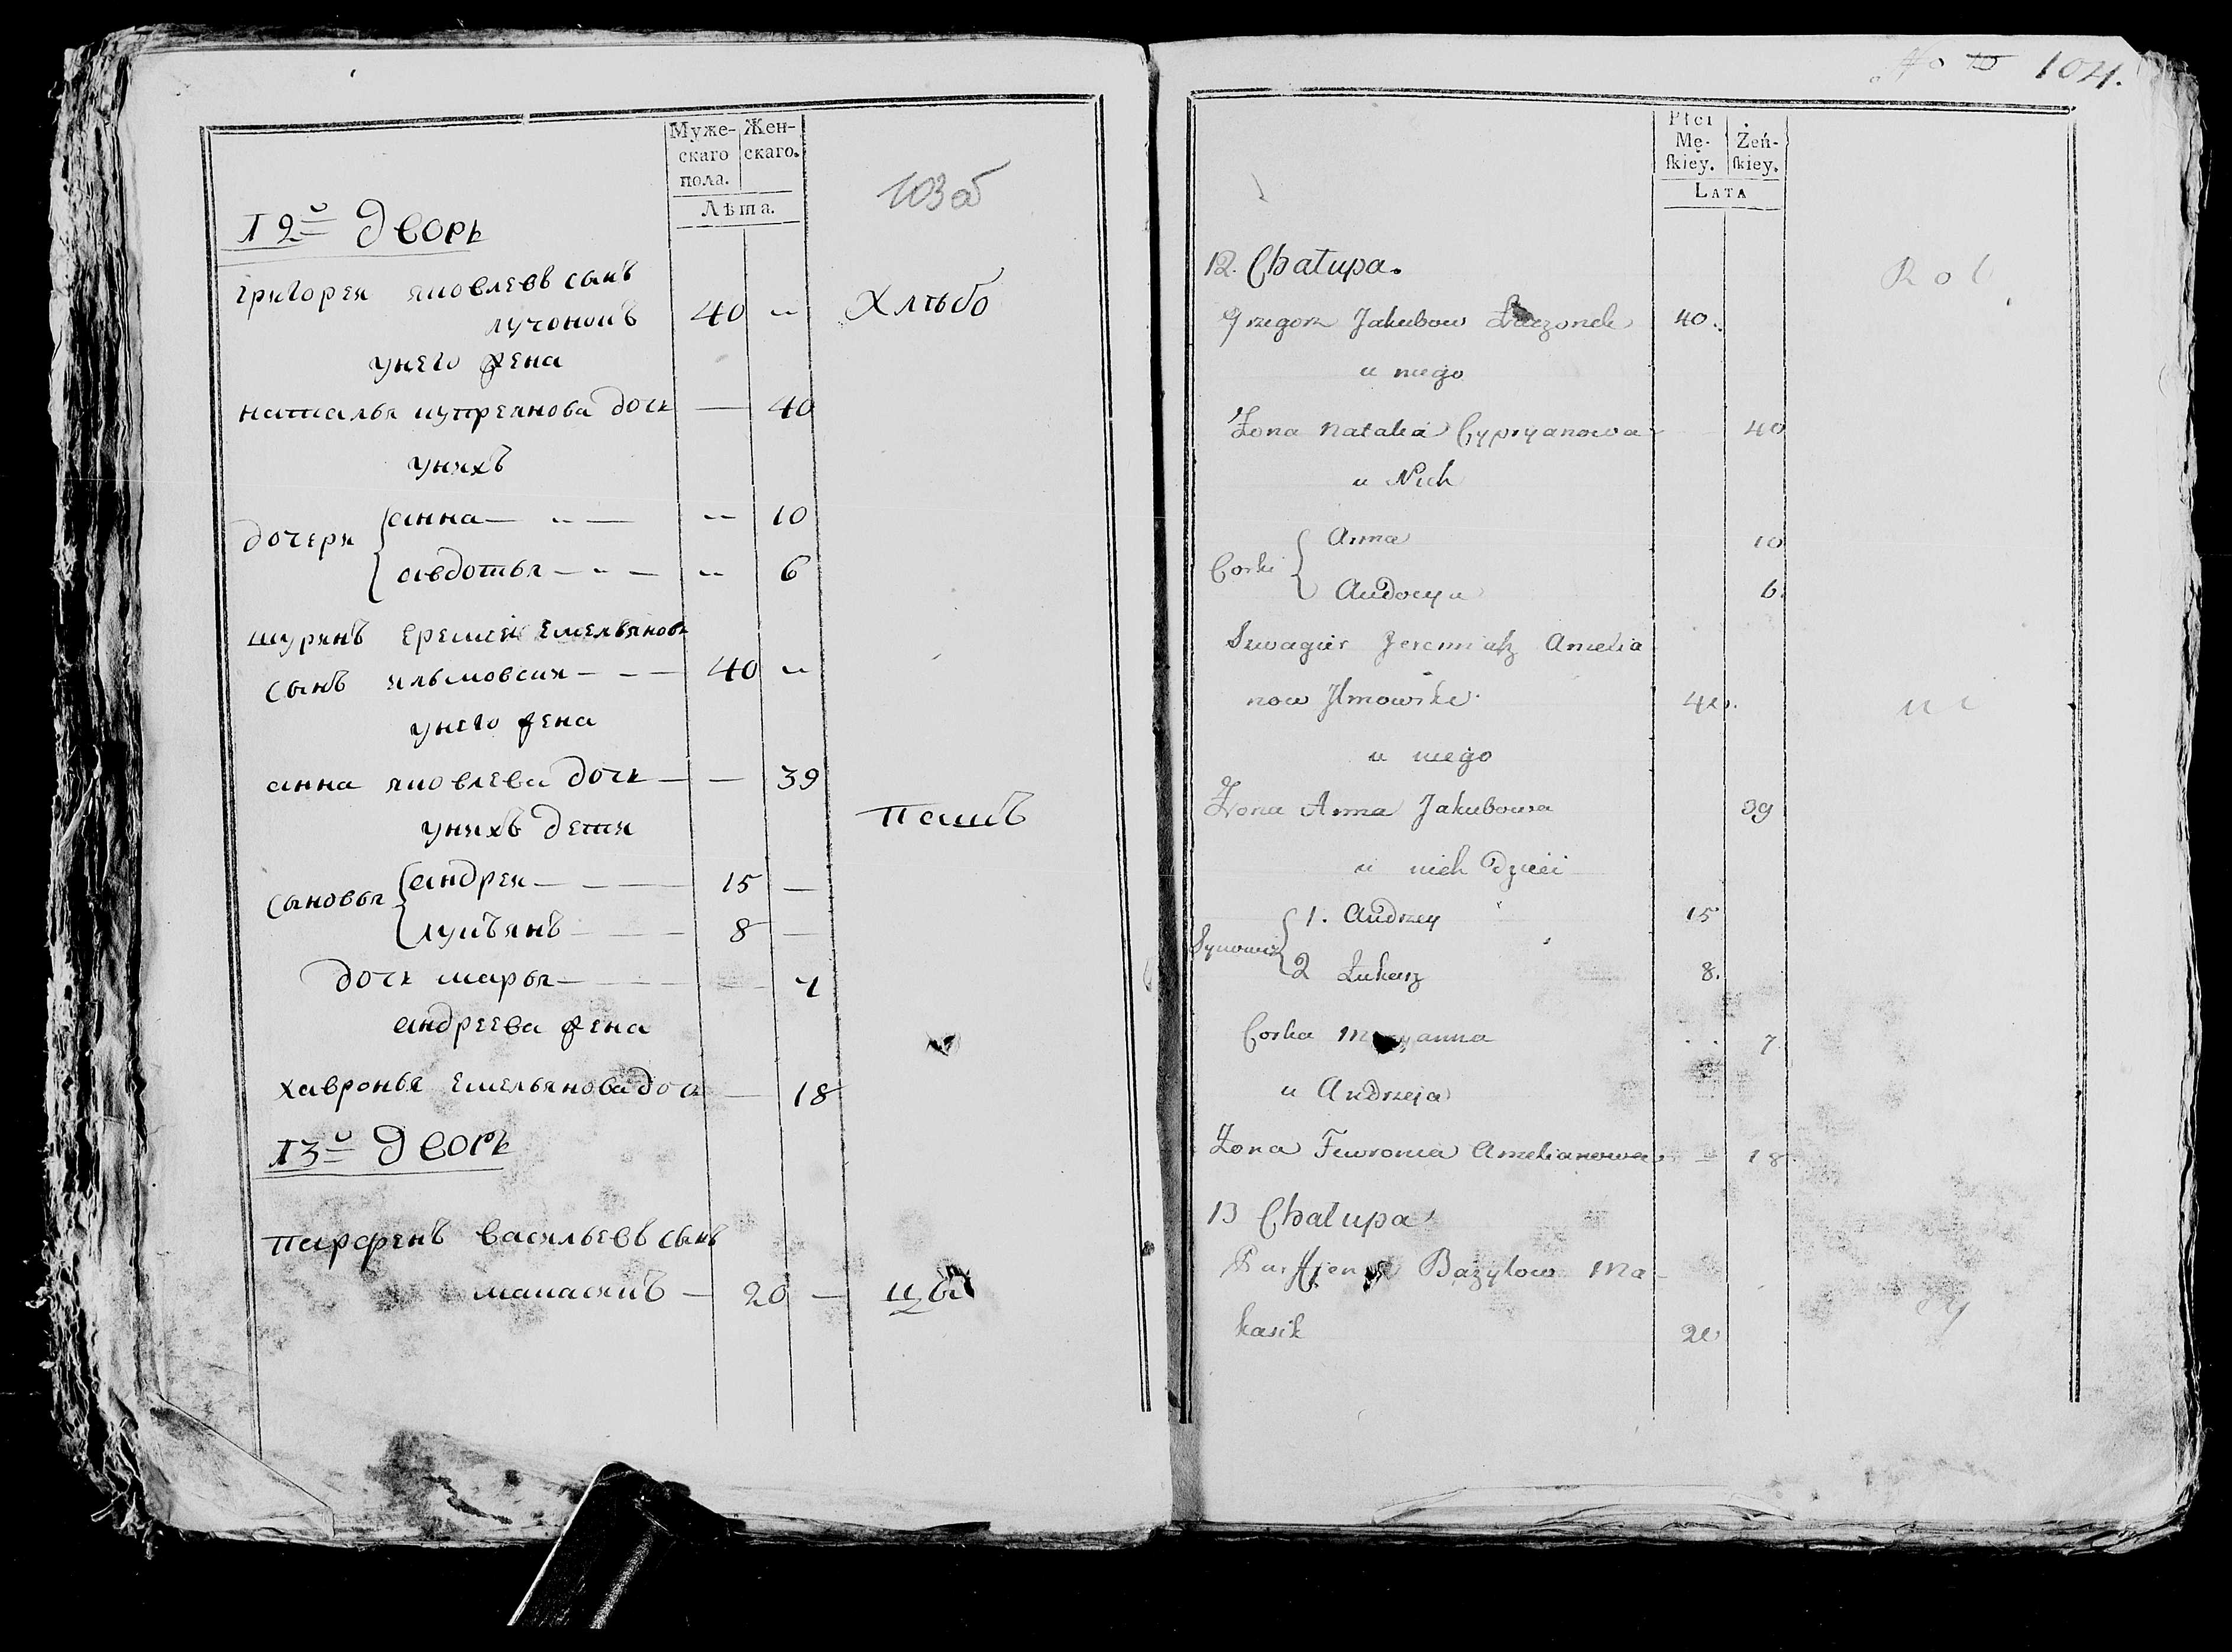 Муже-
скаго
пола.
Жен-
скаго.
Лѣта.
103 об
12й дворъ
григореи яковлевъ сынъ
лучонокъ 40 --
Хлѣбо
унего жена
наталья купреянова дочь — 40
унихъ
дочери
анна -- 10
авдотья -- 6
шуринъ еремеи емельяновъ
сынъ ильмовски 40 --
унего жена
анна яковлева дочь — 39
унихъ дети
пашъ
сыновья
андреи 15 —
лукьянъ 8 —
дочь марья 7
андреева жена
хавронья емельянова дочь — 18
13й дворъ
парфенъ васильевъ сынъ
макасикъ — 20 —
цы
No 10 104.
Płci
Mę-
skiey.
Żeń-
skiey.
LATA
12. Chałupa.
Rol
Grzegorz Jakubow Łuczonek 40.
u niego
Żona Natalia Cypryanowa 40
u Nich
Corki
Anna 10
Audocya 6.
Szwagier Jeremiasz Amelia
now Jlmowski 40.
ni
u niego
Żona Anna Jakubowa 39
u nich Dzieci
Synowie
1. Andrzey 15
2 Łukasz 8.
Corka Maryanna 7
u Andrzeja
Żona Fewronia Amelianowa 18
13 Chałupa
Parffjen Bazylow Ma-
kasik 20
cy